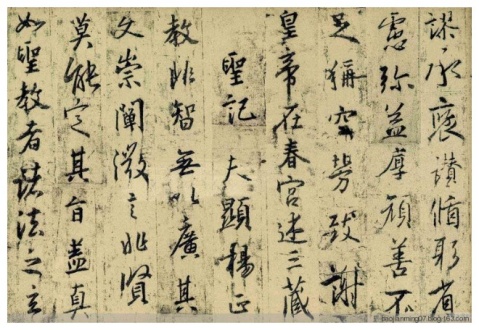 謬承褒讚循躬省
慮弥益厚顏善不
足稱空勞致謝
皇帝在春宮述三藏
聖記 夫顯揚正
教非智無以廣其
文崇闡微言非賢
莫能定其旨蓋真
如聖教者諸法之玄
jiaojianming07.blog.163.com